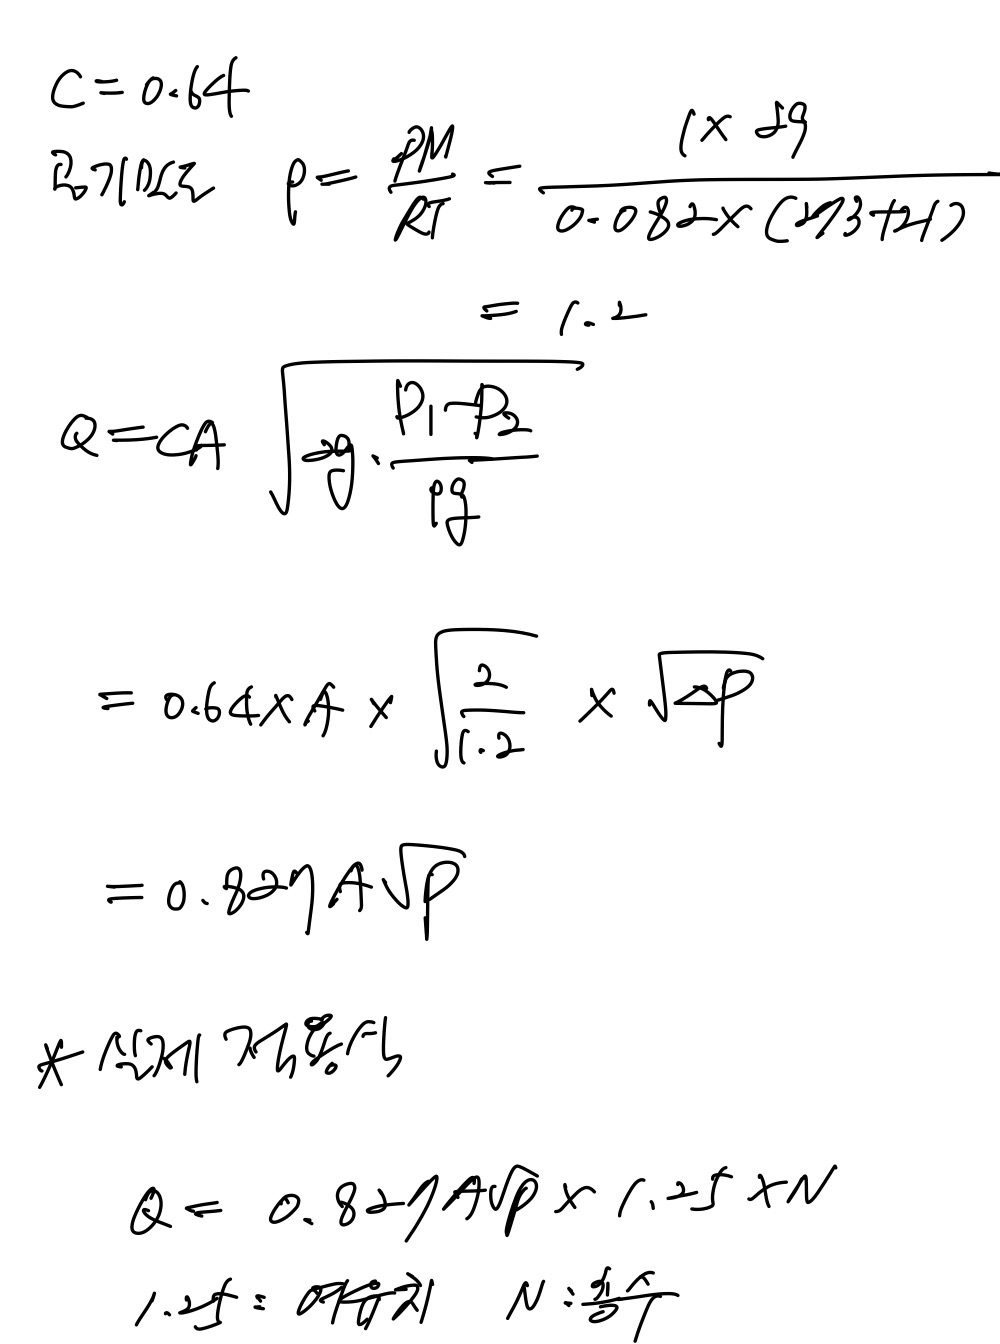 C = 0.64
공기밀도 ρ = PM/RT = 1 × 29 / 0.082 × (273+21)
= 1.2
Q = CA √(2g · (P₁-P₂)/ρg)
= 0.64 × A × √(2/1.2) × √ΔP
= 0.827 A√P
* 실제 적용시
Q = 0.827 A√P × 1.25 × N
1.25 : 여유율 N :